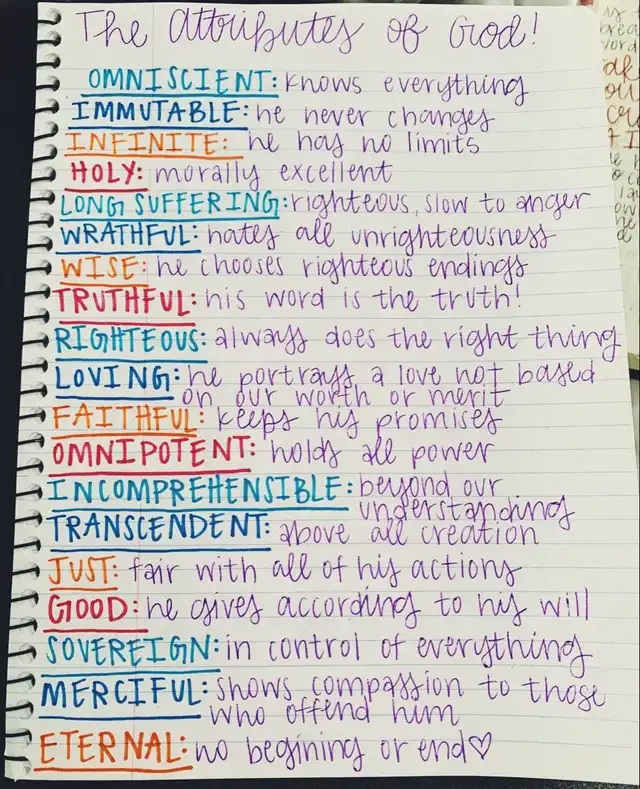 The Attributes of God!
OMNISCIENT: knows everything
IMMUTABLE: he never changes
INFINITE: he has no limits
HOLY: morally excellent
LONG SUFFERING: righteous, slow to anger
WRATHFUL: hates all unrighteousness
WISE: he chooses righteous endings
TRUTHFUL: his word is the truth!
RIGHTEOUS: always does the right thing
LOVING: he portrays a love not based
on our worth or merit
FAITHFUL: keeps his promises
OMNIPOTENT: holds all power
INCOMPREHENSIBLE: beyond our
understanding
TRANSCENDENT: above all creation
JUST: fair with all of his actions
GOOD: he gives according to his will
SOVEREIGN: in control of everything
MERCIFUL: shows compassion to those
who offend him
ETERNAL: no begining or end♡